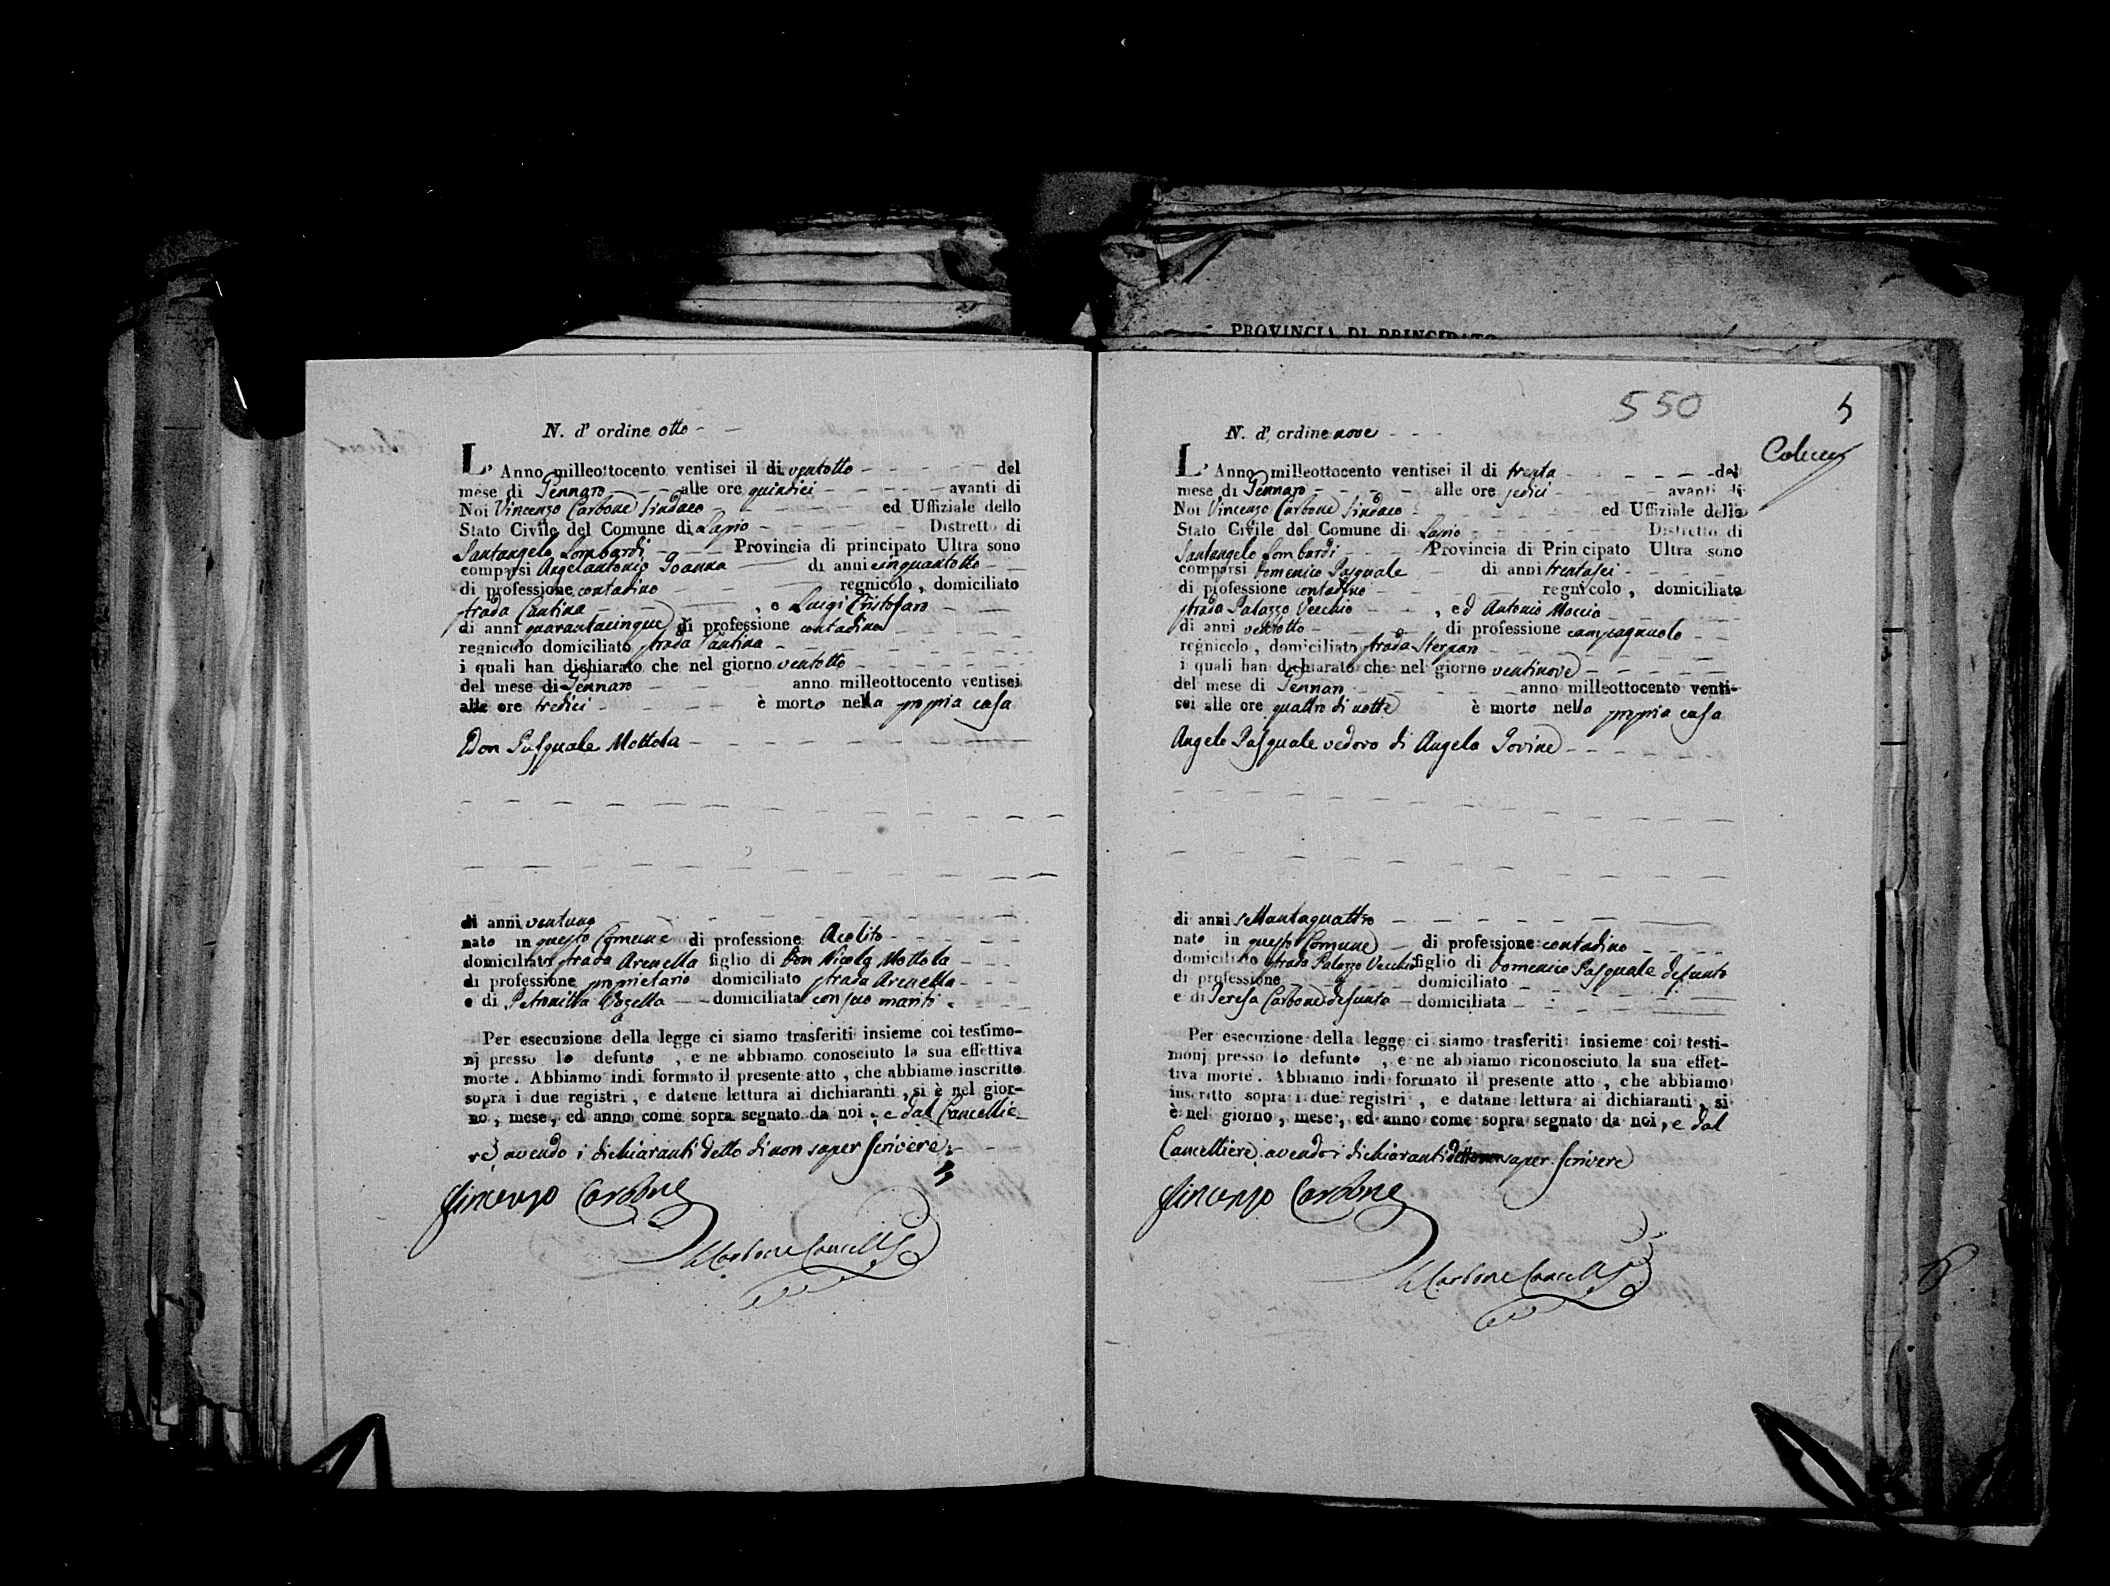 PROVINCIA DI PRINCIPATO
N. d' ordine otto
L' Anno milleottocento ventisei il di ventotto del
mese di Gennaro alle ore quindici avanti di
Noi Vincenzo Carbone Sindaco ed Uffiziale dello
Stato Civile del Comune di Lapio Distretto di
Santangelo Lombardi Provincia di principato Ultra sono
comparsi Angelantonio Ioanna di anni cinquantotto
di professione contadino regnicolo, domiciliato
strada Cantina , e Luigi Cristofaro
di anni quarantacinque di professione contadino
regnicolo domiciliato strada Cantina
i quali han dichiarato che nel giorno ventotto
del mese di Gennaro anno milleottocento ventisei
alle ore tredici è morto nella propria casa
Don Pasquale Mottola
di anni ventuno
nato in questo Comune di professione Acolito
domiciliato strada Arenella figlio di Don Nicola Mottola
di professione proprietario domiciliato strada Arenella
e di Petronilla domiciliata con suo mariti
Per esecuzione della legge ci siamo trasferiti insieme coi testimo-
nj presso lo defunto , e ne abbiamo conosciuto la sua effettiva
morte. Abbiamo indi formato il presente atto, che abbiamo inscritto
sopra i due registri, e datene lettura ai dichiaranti, si è nel gior-
no, mese, ed anno come sopra segnato da noi, e dal Cancellie
re, avendo i dichiaranti detto di non saper scrivere
Vincenzo Carbone
Carbone Cancell
550
5
N. d' ordine nove
L' Anno milleottocento ventisei il di trenta del
mese di Gennaro alle ore sedici avanti di
Noi Vincenzo Carbone Sindaco ed Uffiziale dello
Stato Civile del Comune di Lapio Distretto di
Santangelo Lombardi Provincia di Principato Ultra sono
comparsi Domenico Pasquale di anni trentasei
di professione contadino regnicolo, domiciliato
strada Palazzo Vecchio , ed Antonio Moccia
di anni ventotto di professione campagnuolo
regnicolo, domiciliato strada
i quali han dichiarato che nel giorno ventinove
del mese di Gennaro anno milleottocento venti-
sei alle ore quattro di notte è morto nella propria casa
Angelo Pasquale vedovo di Angela Iovine
di anni settantaquattro
nato in questo Comune di professione contadino
domiciliato strada Palazzo Vecchio figlio di Domenico Pasquale defunto
di professione domiciliato
e di Teresa Carbone defunta domiciliata
Per esecuzione della legge ci siamo trasferiti insieme coi testi-
monj presso lo defunto , e ne abbiamo riconosciuto la sua effet-
tiva morte. Abbiamo indi formato il presente atto, che abbiamo
inscritto sopra i due registri, e datane lettura ai dichiaranti, si
è nel giorno, mese, ed anno come sopra segnato da noi, e dal
Cancelliere, avendo i dichiaranti detto non saper scrivere
Vincenzo Carbone
Carbone Cancell